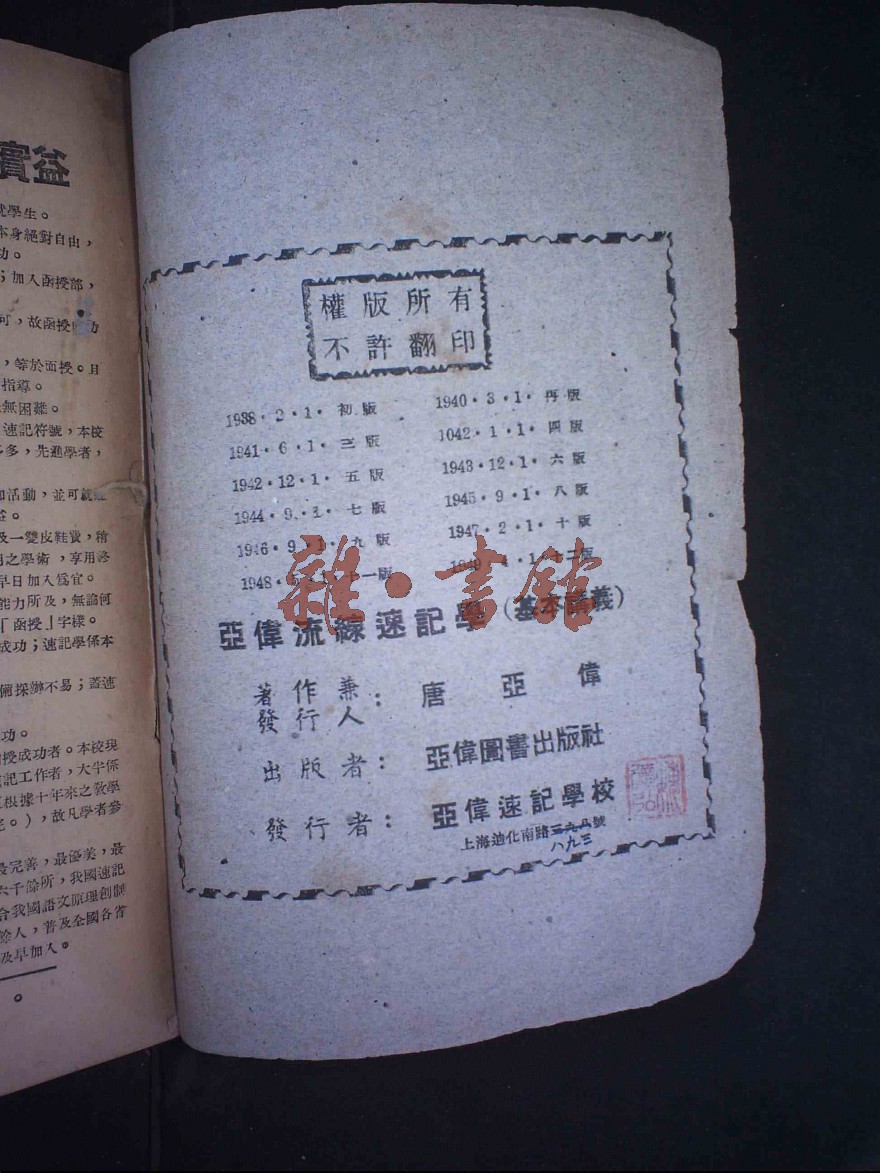 實益
學生。
本身絕對自由，
功。
；加入函授部，
可，故函授
，等於面授。且
指導。
無困難。
速記符號，本校
多，先進學者，
和活動，並可
及一雙皮鞋費，稍
之學術，享用終
早日加入爲宜。
能力所及，無論何
「函授」字樣。
成功；速記學係本
採辦不易；蓋速
功。
授成功者。本校現
記工作者，大半係
根據十年來之敎學
。），故凡學者參
最完善，最優美，最
六千餘所，我國速記
合我國語文原理創制
餘人，普及全國各省
及早加入。
權版所有
不許翻印
1938·2·1·初版 1940·3·1·再版
1941·6·1·三版 1042·1·1·四版
1942·12·1·五版 1943·12·1·六版
1944·9·1·七版 1945·9·1·八版
1946·9·1·九版 1947·2·1·十版
1948· 十一版 1949·4·1·十二版
雜·書館
亞偉流線速記學（基本講義）
著作兼
發行人：唐亞偉
出版者：亞偉圖書出版社
發行者：亞偉速記學校
上海迪化南路三六八號
八九三